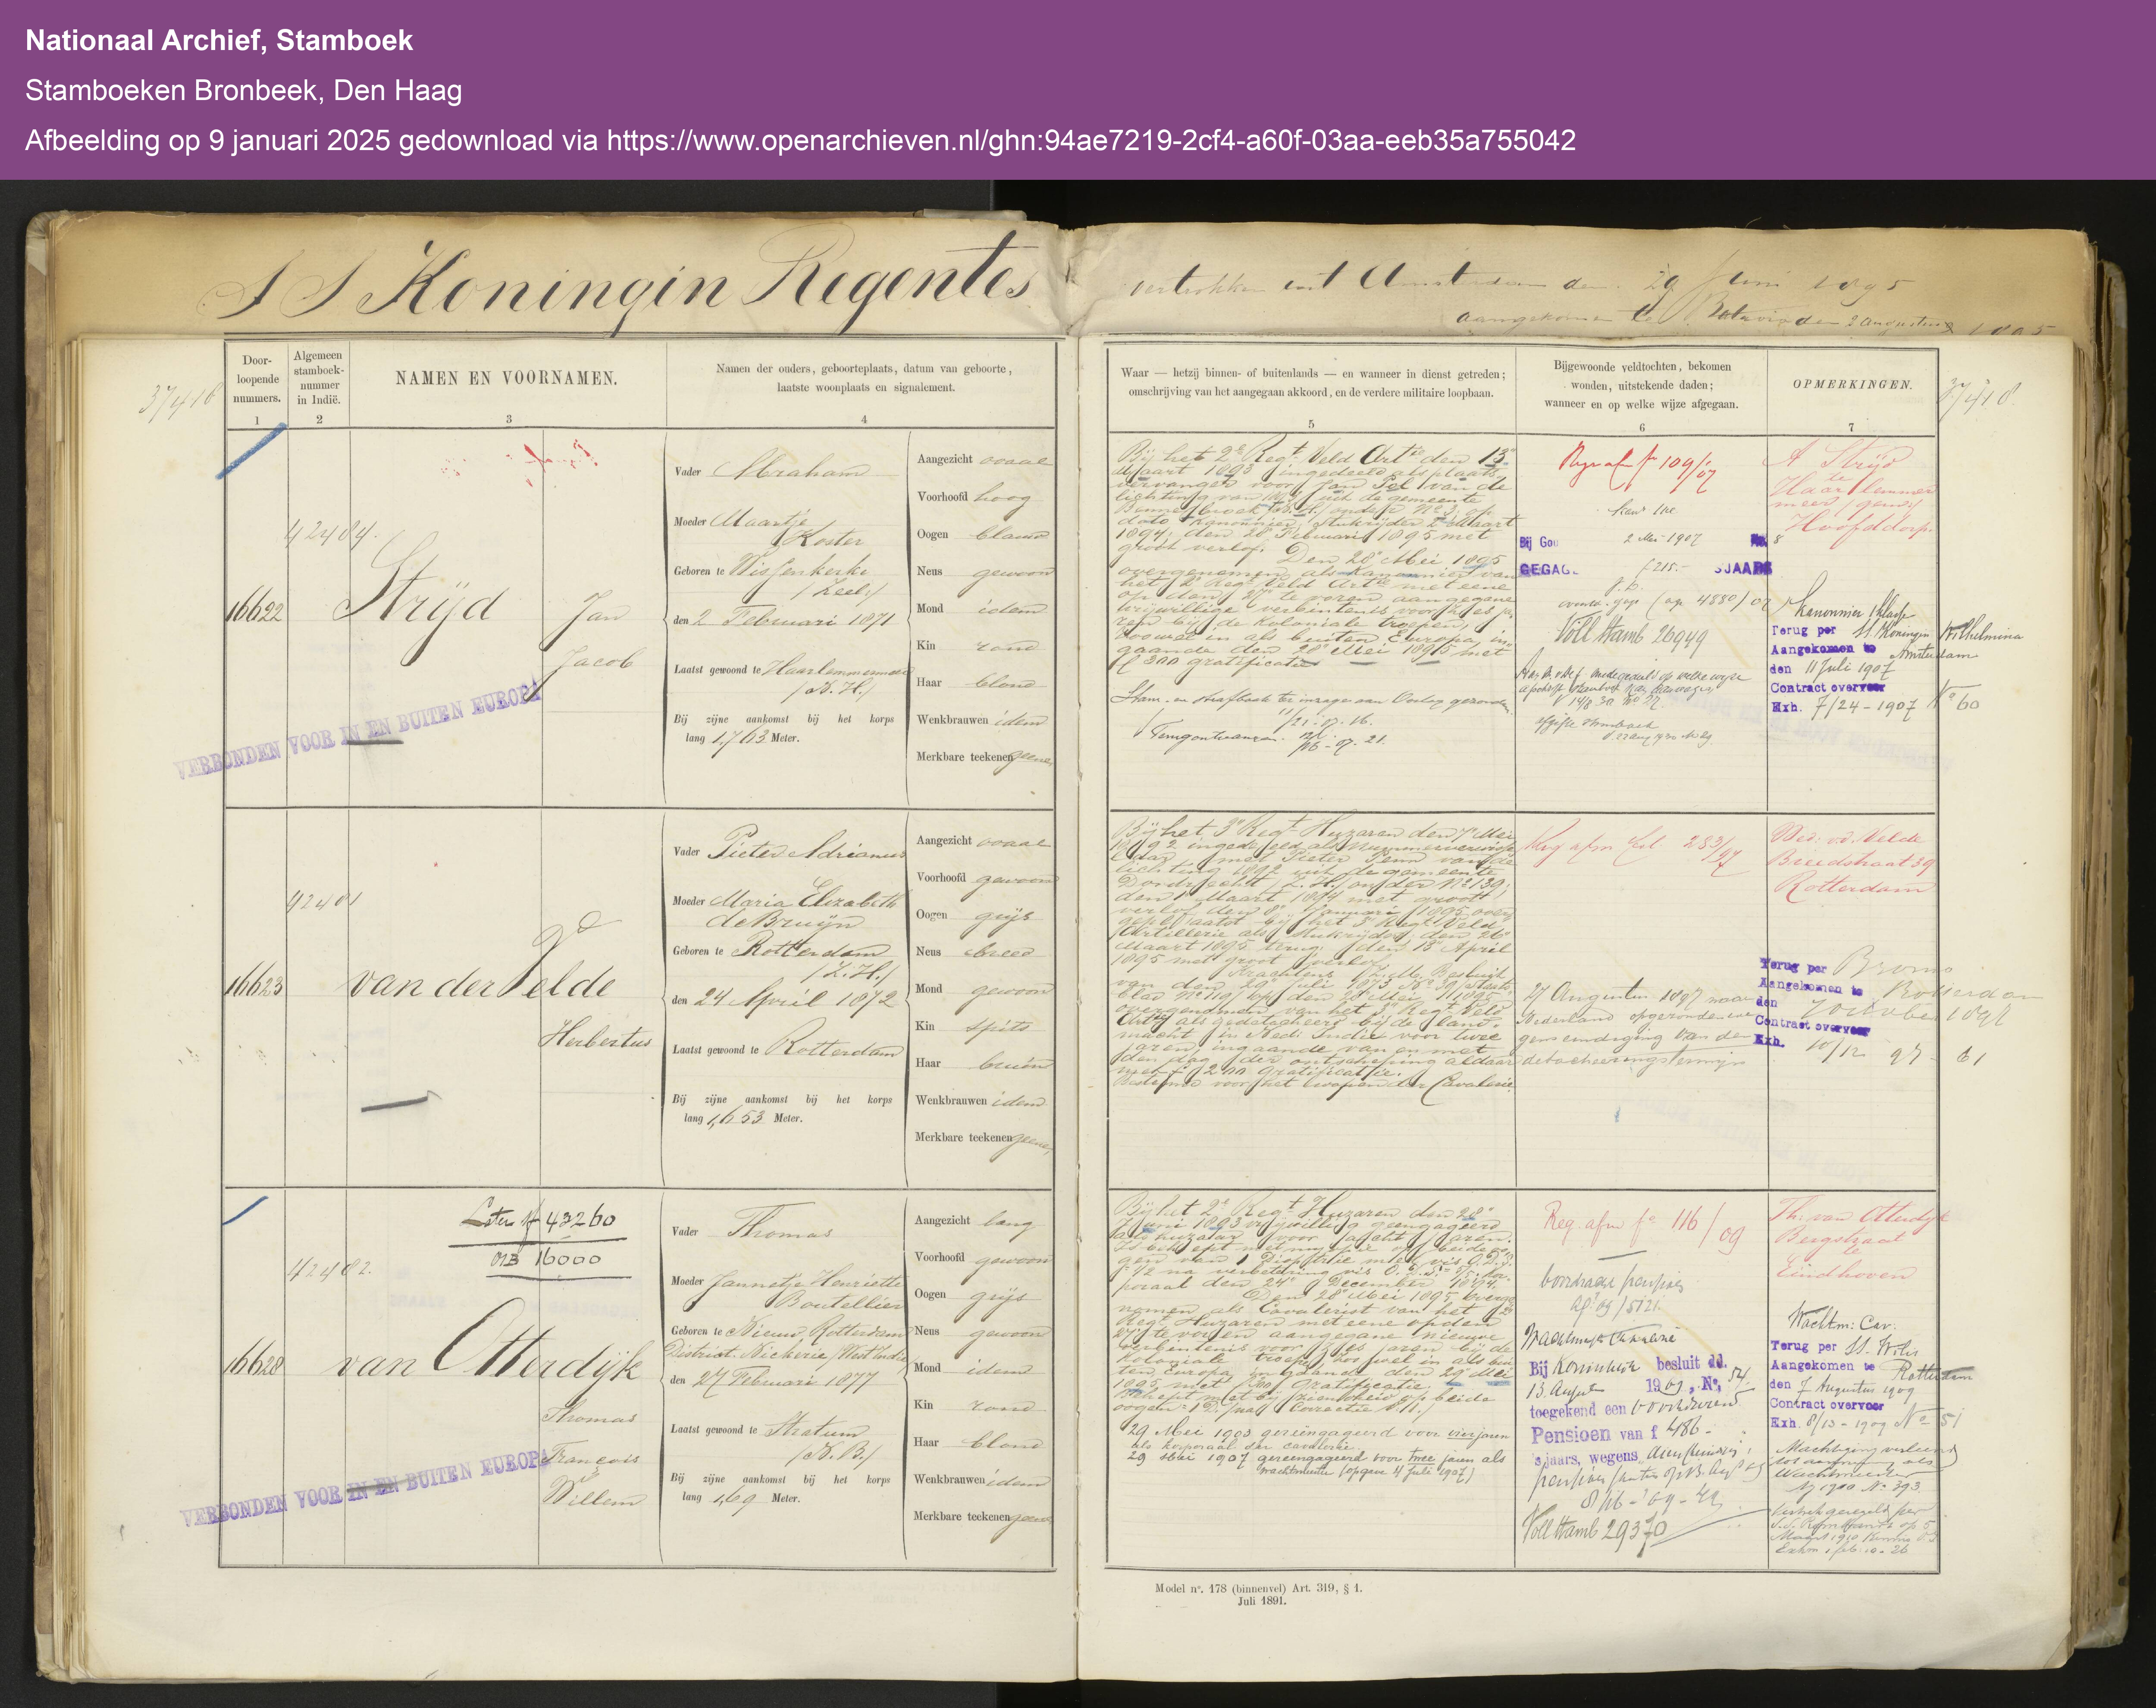 Nationaal Archief, Stamboek
Stamboeken Bronbeek, Den Haag
Afbeelding op 9 januari 2025 gedownload via https://www.openarchieven.nl/ghn:94ae7219-2cf4-a60f-03aa-eeb35a755042
S S Koningin Regentes
vertrokken uit Amsterdam den 29 Juni 1895
aangekomen te Batavia den 2 Augustus 1895
37418
Door-
loopende
nummers.
1
Algemeen
stamboek-
nummer
in Indië.
2
NAMEN EN VOORNAMEN.
3
Namen der ouders, geboorteplaats, datum van geboorte,
laatste woonplaats en signalement.
4
Waar — hetzij binnen- of buitenlands — en wanneer in dienst getreden;
omschrijving van het aangegaan akkoord, en de verdere militaire loopbaan.
5
Bijgewoonde veldtochten, bekomen
wonden, uitstekende daden;
wanneer en op welke wijze afgegaan.
6
OPMERKINGEN.
7
37418.
16622
42484.
Strijd
Jan
Jacob
VERBONDEN VOOR IN EN BUITEN EUROPA
Vader Abraham
Moeder Maartje
Koster
Geboren te Wissenkerke
/Zeel:/
den 2 Februari 1871
Laatst gewoond te Haarlemmermeer
/N. H./
Bij zijne aankomst bij het korps
lang 1,763 Meter.
Aangezicht ovaal
Voorhoofd hoog
Oogen blauw
Neus gewoon
Mond idem
Kin rond
Haar blond
Wenkbrauwen idem
Merkbare teekenen geene
Bij het 2e Regt Veld Arte den 13e
Maart 1893 ingedeeld als plaats-
vervanger voor Jan Pel van de
lichting van 1893 uit de gemeente
Bennebroek /N. H./ onder No 3; op
dato kanonnier stukrijder 2 Maart
1894; den 28 Februari 1895 met
groot verlof. Den 28e Mei 1895
overgenomen als kanonnier van
het 2e Regt Veld Arte met eene
op den 27e te voren aangegane
vrijwillige verbintenis voor zes ja-
ren bij de koloniale troepen,
zoowel in als buiten Europa, in-
gaande den 28e Mei 1895 met
f 300 gratificatie
Terugontvangen.
109/07
Bij Gou 2 Mei 1907 No. 8
GEGAG. f 215.- SJAARS
4880/07
Voll Stamb 26949
A Strijd
te
Haarlemmer
meer gem:
Hoofddorp.
Kanonnier 1 klasse
Terug per SS. Koningin Wilhelmina
Aangekomen te Amsterdam
den 11 Juli 1907
Contract overvoer
Exh. 7/24 - 1907 No 60
16623
42481
van der Velde
Herbertus
Vader Pieter Adrianus
Moeder Maria Elizabeth
de Bruijn
Geboren te Rotterdam
/Z. H./
den 24 April 1872
Laatst gewoond te Rotterdam
Bij zijne aankomst bij het korps
lang 1,653 Meter.
Aangezicht ovaal
Voorhoofd gewoon
Oogen grijs
Neus breed
Mond gewoon
Kin spits
Haar bruin
Wenkbrauwen idem
Merkbare teekenen geene
Bij het 3e Regt Huzaren den 7e Mei
1892 ingedeeld als nummerverwisse-
laar met Pieter Penn van de
lichting 1892 uit de gemeente
Dordrecht /Z. H./ onder No 139;
den 1e Maart 1894 met groot
verlof den 8e Januari 1895 over
geplaatst bij het 3e Regt Veld
Artillerie als stukrijder; den 26e
Maart 1895 terug; den 13e April
1895 met groot verlof.
Krachtens Z. M. Besluit
van den 29e Juli 1893 No 39 /Staats-
blad No 119/ op den 28e Mei 1895
overgenomen van het 3e Regt Veld
Arte als gedetacheerd bij de land-
macht in Ned: Indië voor twee
jaren ingaande van en met
den dag der ontscheping aldaar
met f 200 gratificatie.
Bestemd voor het wapen der Cavalerie
283/97
27 Augustus 1897 naar
Nederland opgezonden we-
gens eindiging van den
detacheeringstermijn
Wed: v.d. Velde
Breedstraat 39
Rotterdam
Terug per Bromo
Aangekomen te Rotterdam
den 7 October 1897
Contract overvoer
Exh. 10/12 97 - 61
16628
42482.
Later No 43260
OIB 16000
van Otterdijk
Thomas
François
Willem
VERBONDEN VOOR IN EN BUITEN EUROPA
Vader Thomas
Moeder Jannetje Henriette
Boutellier
Geboren te Nieuw Rotterdam
District Nickerie /West Indië/
den 27 Februari 1877
Laatst gewoond te Stratum
/N. B./
Bij zijne aankomst bij het korps
lang 1,69 Meter.
Aangezicht lang
Voorhoofd gewoon
Oogen grijs
Neus gewoon
Mond idem
Kin rond
Haar blond
Wenkbrauwen idem
Merkbare teekenen geene
Bij het 2e Regt Huzaren den 28e
Juni 1893 vrijwillig geengageerd
als huzaar voor acht jaren.
poraal den 24e December 1894.
Den 28e Mei 1895 overge-
nomen als Cavalerist van het 2e
Regt Huzaren met eene op den
27e te voren aangegane nieuwe
verbintenis voor zes jaren bij de
koloniale troepen, zoo wel in als bui-
ten Europa, ingaande den 28e Mei
1895 met f 300 gratificatie.
29 Mei 1903 gereëngageerd voor vier jaren
als korporaal der cavalerie.
29 Mei 1907 gereengageerd voor twee jaren als
wachtmeester (opgen 4 Juli 1907)
Reg. afm fo 116/09
Bij Koninklijk besluit dd.
13 August 1909, No. 54
toegekend een voortdurend
Pensioen van f 486.-
'sjaars, wegens
Voll Stamb 29370
Th: van Otterdijk
Bergstraat
te
Eindhoven
Wachtm: Cav.
Terug per SS. Wilis
Aangekomen te Rotterdam
den 7 Augustus 1909
Contract overvoer
Exh. 8/13 - 1909 No 51
Machtiging verleend
Wachtmeester
Model no. 178 (binnenvel) Art. 319, § 1.
Juli 1891.